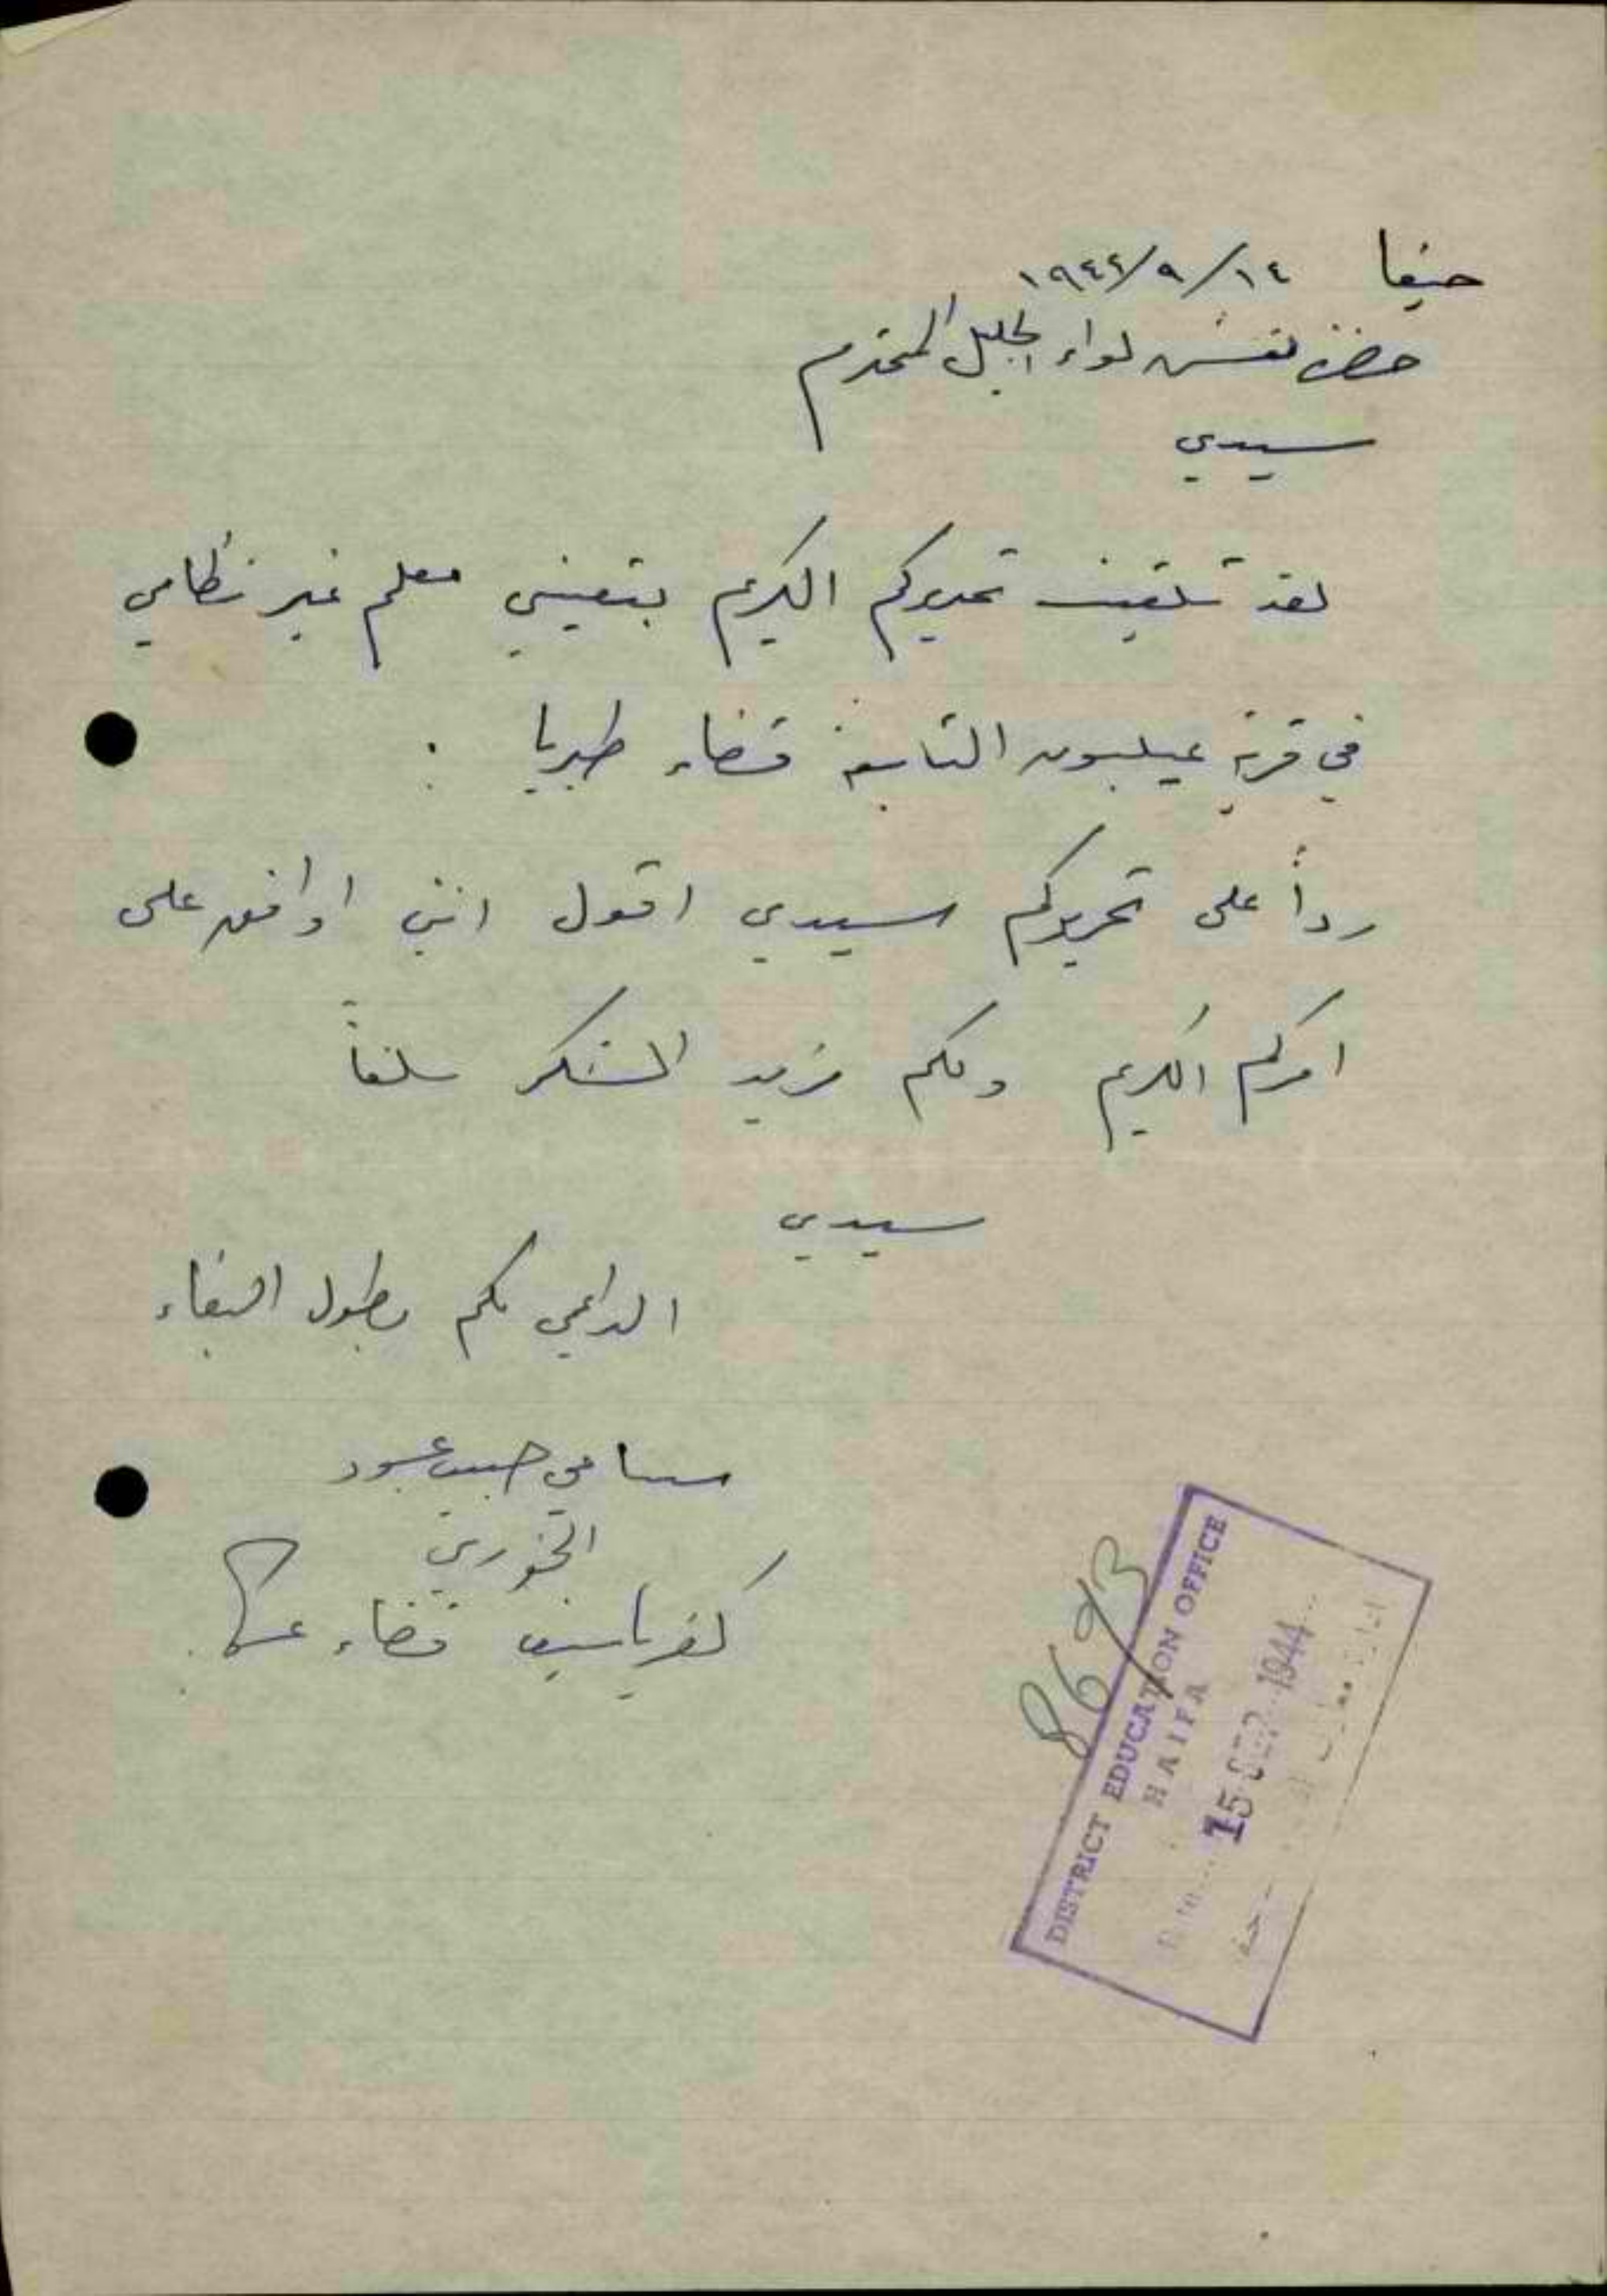 حيفا ١٤/٩/١٩٤٤
حضرة مفتش لواء الجليل المحترم
سيدي
لقد تلقيت تحريركم الكريم بتعييني معلم غير نظامي
في قرية عيلبون التابعة قضاء طبريا .
رداً على تحريركم سيدي اقول انني اوافق على
امركم الكريم ولكم مزيد الشكر سلفاً
سيدي
الداعي لكم بطول البقاء
سامي حبيب عبود
الخوري
كفرياسيف قضاء عكا
8693
DISTRICT EDUCATION OFFICE
HAIFA
15 1944